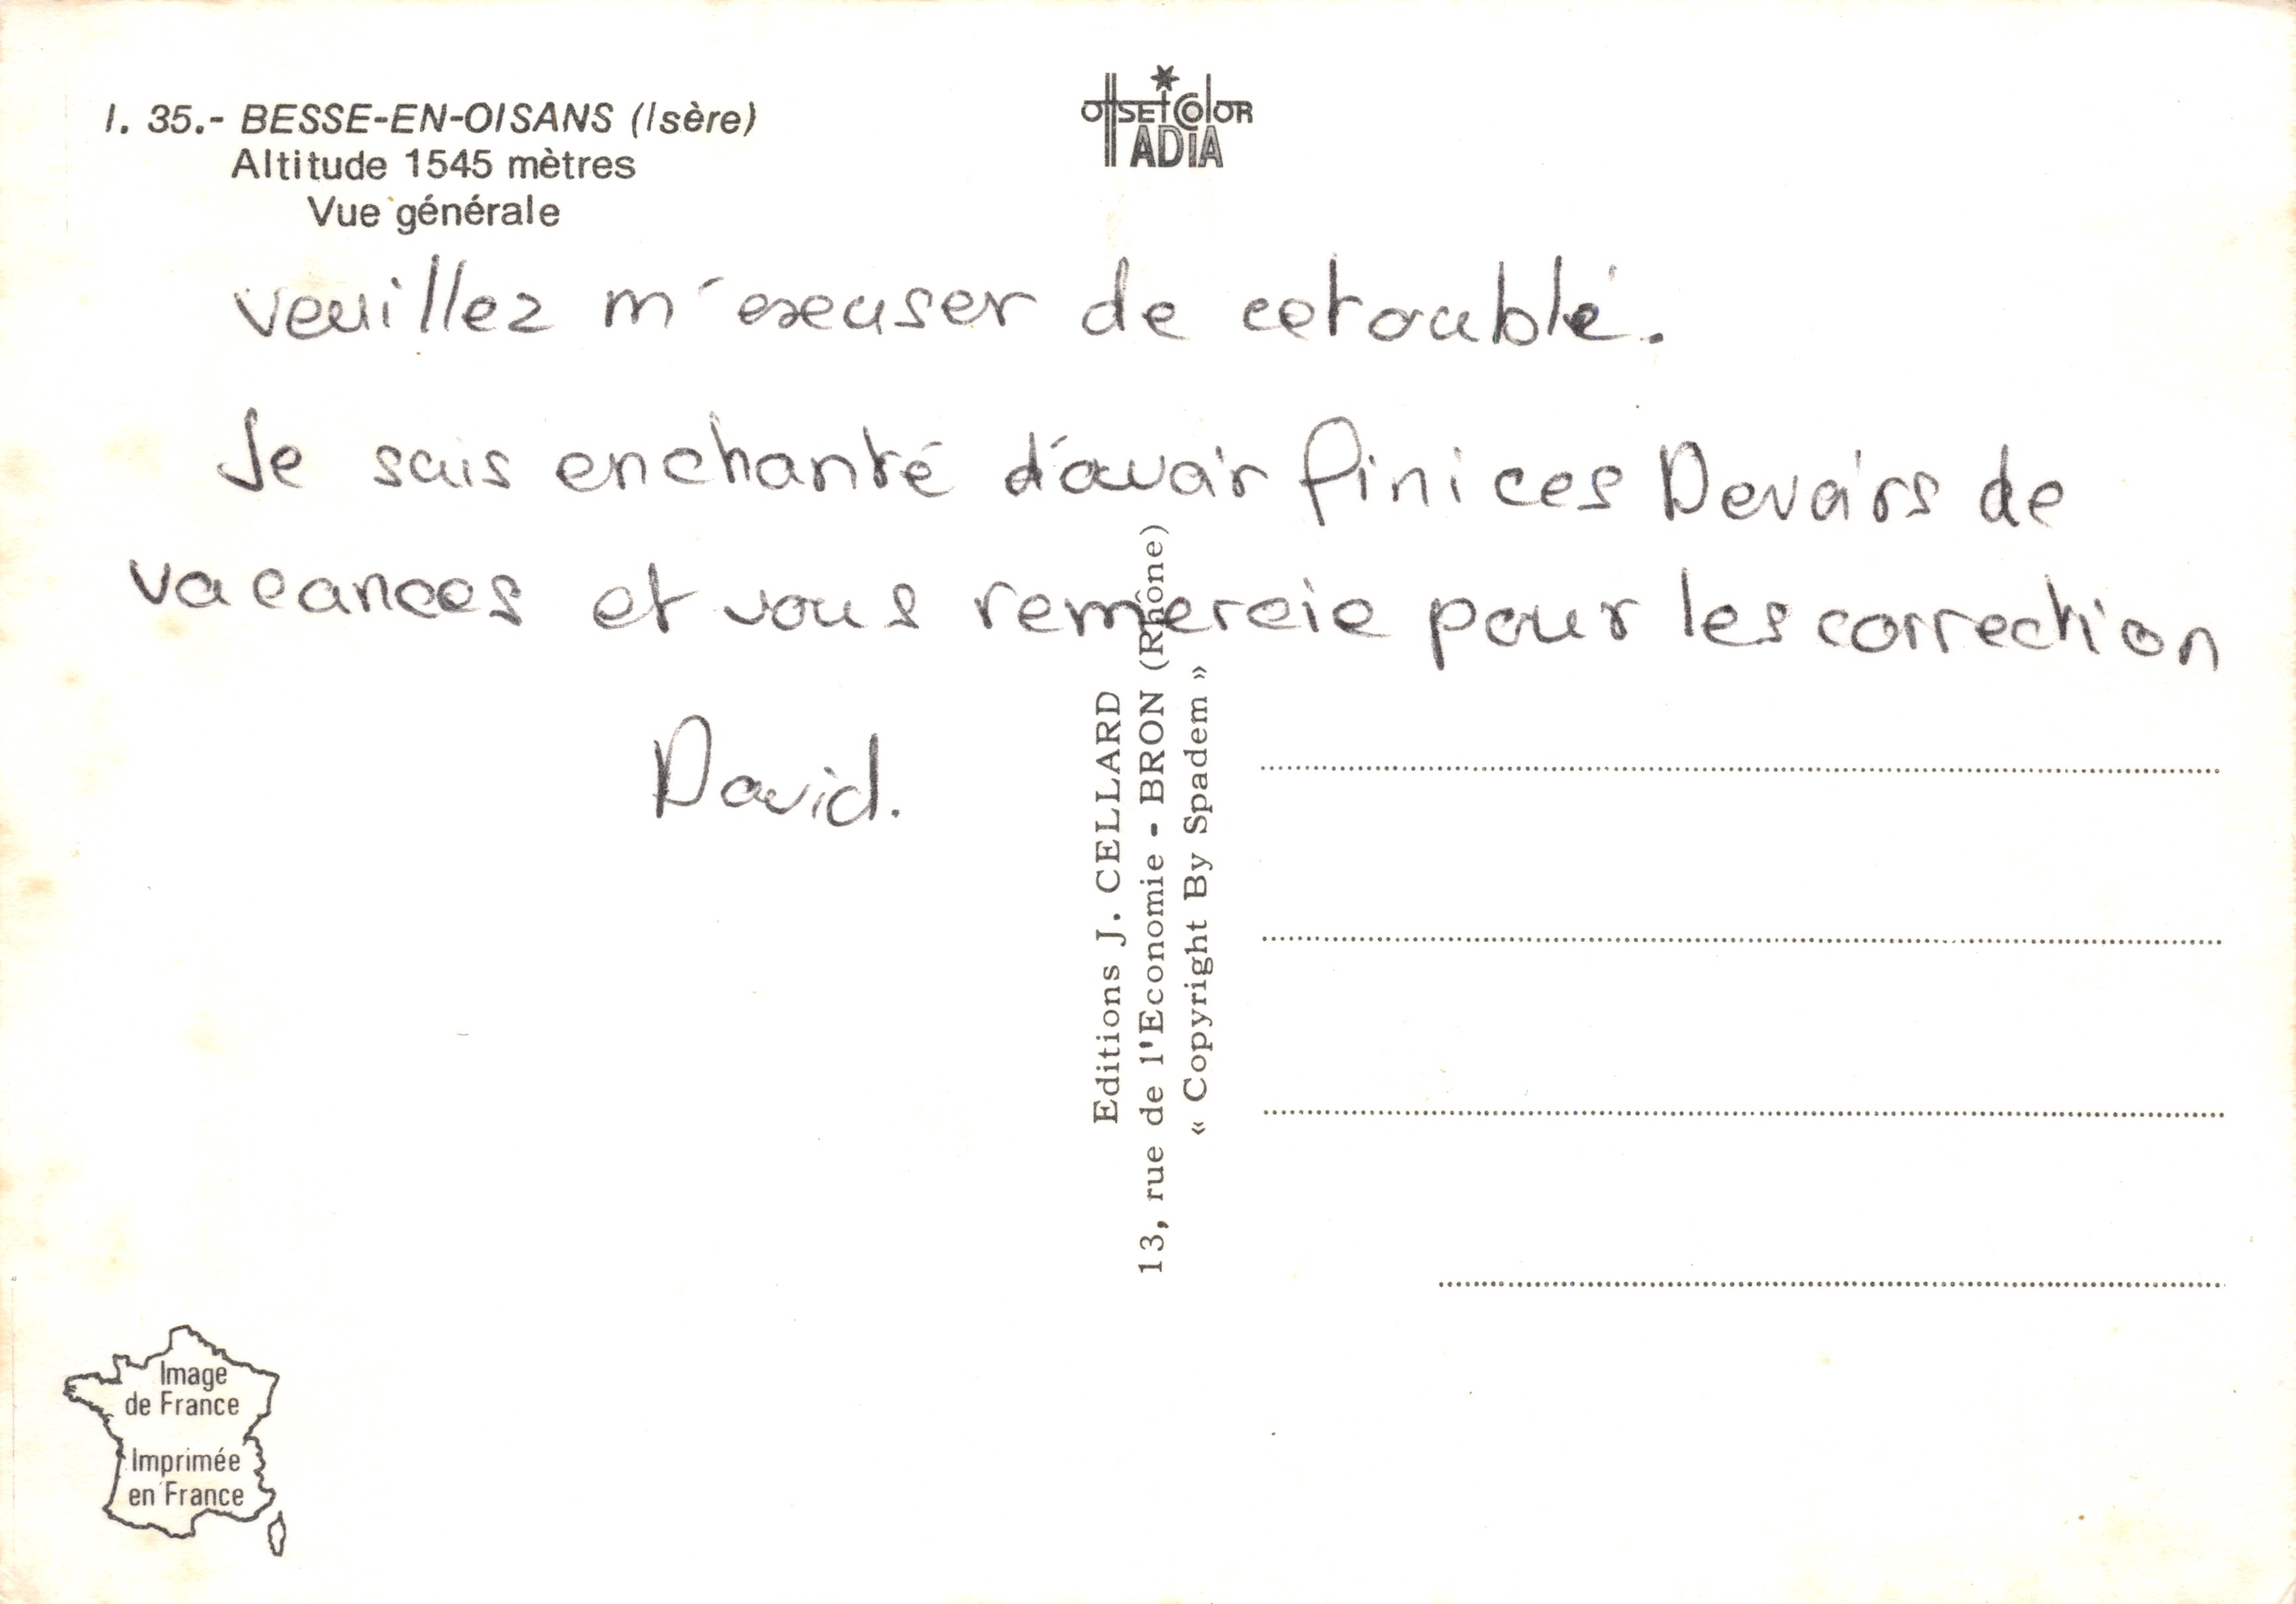 I. 35.- BESSE-EN-OISANS (Isère)
Altitude 1545 mètres
Vue générale
OffSEt COlOR
ADiA
veuillez m'excuser de cetoublé.
Je suis enchanté d'avoir fini ces Devoirs de
vacances et vous remercie pour les correction
David.
Editions J. CELLARD
13, rue de l'Economie - BRON (Rhône)
« Copyright By Spadem »
Image
de France
Imprimée
en France